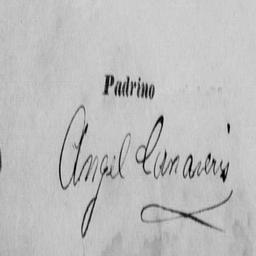 Padrino
Angel Canaveris